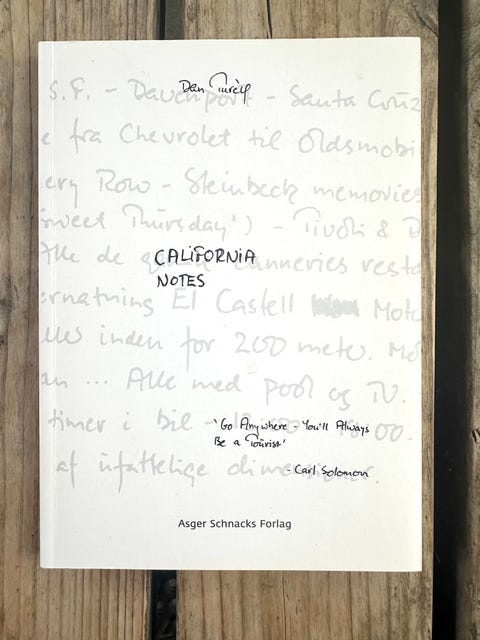 Dan Turèll
S.F. - Davenport - Santa Cruz
e fra Chevrolet til Oldsmobi
ery Row - Steinbeck memories
sweet Thursday') - Tivoli & D
Alle de canneries resta
CALIFORNIA
NOTES
ernatning El Castell Mote
inden for 200 meter. Mo
an ... Alle med pool og TV.
timer i bil 00.
'Go Anywhere - You'll Always
Be a Tourist'
af ufattelige dimensioner.
- Carl Solomon
Asger Schnacks Forlag